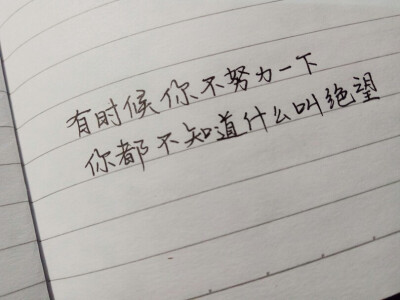 有时候你不努力一下
你都不知道什么叫绝望